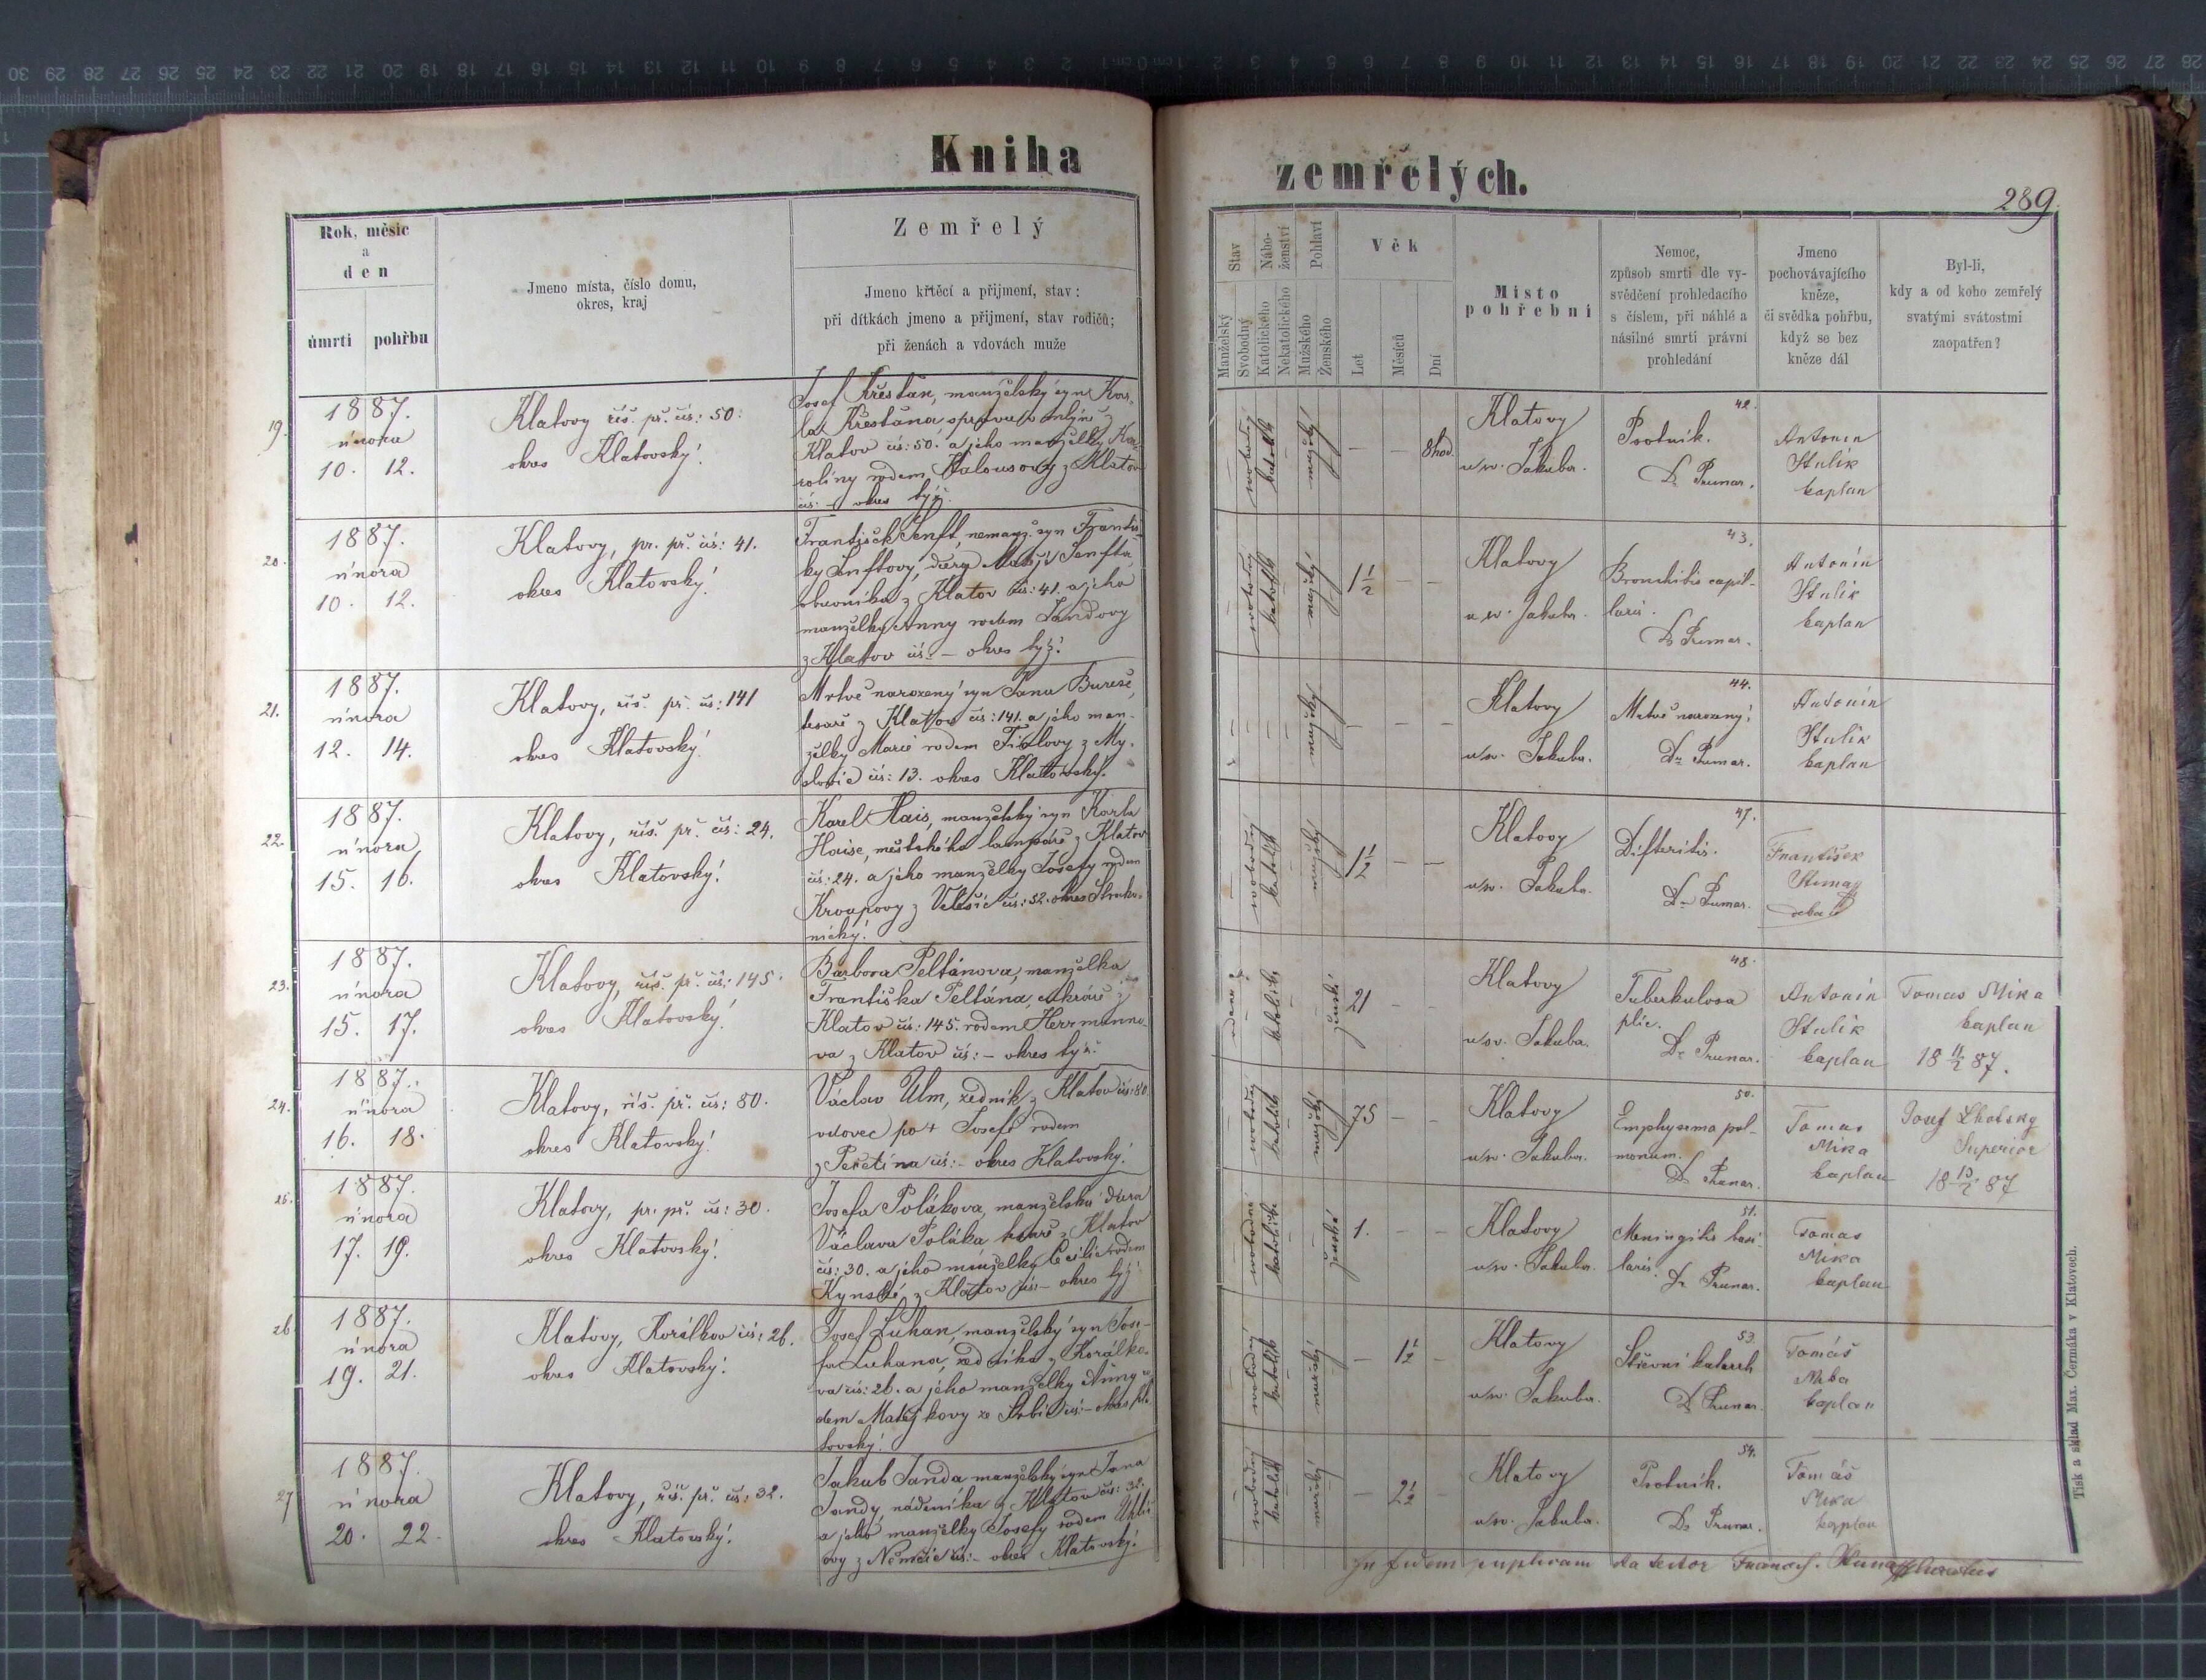 Kniha
zemřelých.
289
Rok, měsíc
a
den
úmrtí pohřbu
Jmeno místa, číslo domu,
okres, kraj
Zemřelý
Jmeno křtěcí a přijmení, stav:
při dítkách jmeno a přijmení, stav rodičů;
při ženách a vdovách muže
Stav
Manželský
Svobodný
Nábo-
ženství
Katolického
Nekatolického
Pohlaví
Mužského
Ženského
Věk
Let
Měsíců
Dní
Místo
pohřební
Nemoc,
způsob smrti dle vy-
svědčení prohledacího
s číslem, při náhlé a
násilné smrti právní
prohledání
Jmeno
pochovávajícího
kněze,
či svědka pohřbu,
když se bez
kněze dál
Byl-li,
kdy a od koho zemřelý
svatými svátostmi
zaopatřen?
19.
1887.
února
10. 12.
Klatovy říš. př. čís: 50.
okres Klatovský.
Josef Křesťan, manželský syn Kar-
la Křesťana, správce mlýna z
Klatov čís: 50. a jeho manželky Ka-
roliny rodem Kalousovy z Klatov
čís: – okres týž.
svobodný
katolík
mužský
– – 8 hod.
Klatovy
u sv. Jakuba.
42.
Psotník.
Dr Prunar.
Antonín
Stulík
kaplan
20.
1887.
února
10. 12.
Klatovy, pr. př. čís: 41.
okres Klatovský.
František Senft, nemanž. syn Františ-
ky Senftovy, dcery Matěje Senfta,
obuvníka z Klatov čís: 41. a jeho
manželky Anny rodem Jandovy
z Klatov čís: – okres týž.
svobodný
katolík
mužský
1½ – –
Klatovy
u sv. Jakuba.
43.
Bronchitis capil-
laris.
Dr Prunar.
Antonín
Stulík
kaplan
21.
1887.
února
12. 14.
Klatovy, říš. př. čís: 141
okres Klatovský.
Mrtvě narozený syn Jana Bureše,
tesaře z Klatov čís: 141. a jeho man-
želky Marie rodem z My-
slovic čís: 13. okres Klatovský.
mužský
– – –
Klatovy
u sv. Jakuba.
44.
Mrtvě narozený.
Dr Prunar.
Antonín
Stulík
kaplan
22.
1887.
února
15. 16.
Klatovy, říš. př. čís: 24.
okres Klatovský.
Karel Hais, manželský syn Karla
Haise, městského lampáře z Klatov
čís: 24. a jeho manželky Josefy rodem
Kroupovy z čís: 52. okres Strako-
nický.
svobodný
katolík
mužský
1½ – –
Klatovy
u sv. Jakuba.
47.
Difteritis.
Dr Prunar.
František
děkan
23.
1887.
února
15. 17.
Klatovy, říš. př. čís: 145.
okres Klatovský.
Barbora Peltánova, manželka
Františka Peltána, cukráře z
Klatov čís: 145. rodem Herrmanno-
va z Klatov čís: – okres týž.
ženské
21 – –
Klatovy
u sv. Jakuba.
48.
Tuberkulosa
plic.
Dr Prunar.
Antonín
Stulík
kaplan
Tomas Mika
kaplan
18 11/2 87.
24.
1887.
února
16. 18.
Klatovy, říš. př. čís: 80.
okres Klatovský.
Václav Ulm, zedník z Klatov čís: 80.
vdovec po † Josefě rodem
z Předina čís: – okres Klatovský.
svobodný
katolík
mužský
75 – –
Klatovy
u sv. Jakuba.
50.
Emphysema pul-
monum.
Dr Prunar.
Tomas
Mika
kaplan
Josef Lhotsky
Superior
18 10/2 87
25.
1887.
února
17. 19.
Klatovy, pr. př. čís: 30.
okres Klatovský.
Josefa Polákova, manželská dcera
Václava Poláka z Klatov
čís: 30. a jeho manželky Cecilie rodem
Kynské z Klatov čís: – okres týž.
svobodné
katolické
ženské
1. – –
Klatovy
u sv. Jakuba.
51.
Meningitis basi-
laris.
Dr Prunar.
Tomas
Mika
kaplan
26
1887.
února
19. 21.
Klatovy, Korálkov čís: 26.
okres Klatovský.
Josef Luhan, manželský syn Jose-
fa Luhana, zedníka z Korálko-
va čís: 26. a jeho manželky Anny ro-
dem Matějkovy ze čís: – okres Kla-
tovský.
svobodný
katolík
mužský
– 1½ –
Klatovy
u sv. Jakuba.
53.
Střevní katarrh
Dr Prunar.
Tomáš
Mika
kaplan
27
1887.
února
20. 22.
Klatovy, říš. př. čís: 32.
okres Klatovský.
Jakub Janda manželský syn Jana
Jandy, nádeníka z Klatov čís: 32.
a jeho manželky Josefy rodem Uhlí-
ovy z Němčic čís: – okres Klatovský.
svobodný
katolík
mužský
– 2½ –
Klatovy
u sv. Jakuba.
54.
Psotník.
Dr Prunar.
Tomáš
Mika
kaplan
In fidem
Tisk a sklad Max. Čermáka v Klatovech.